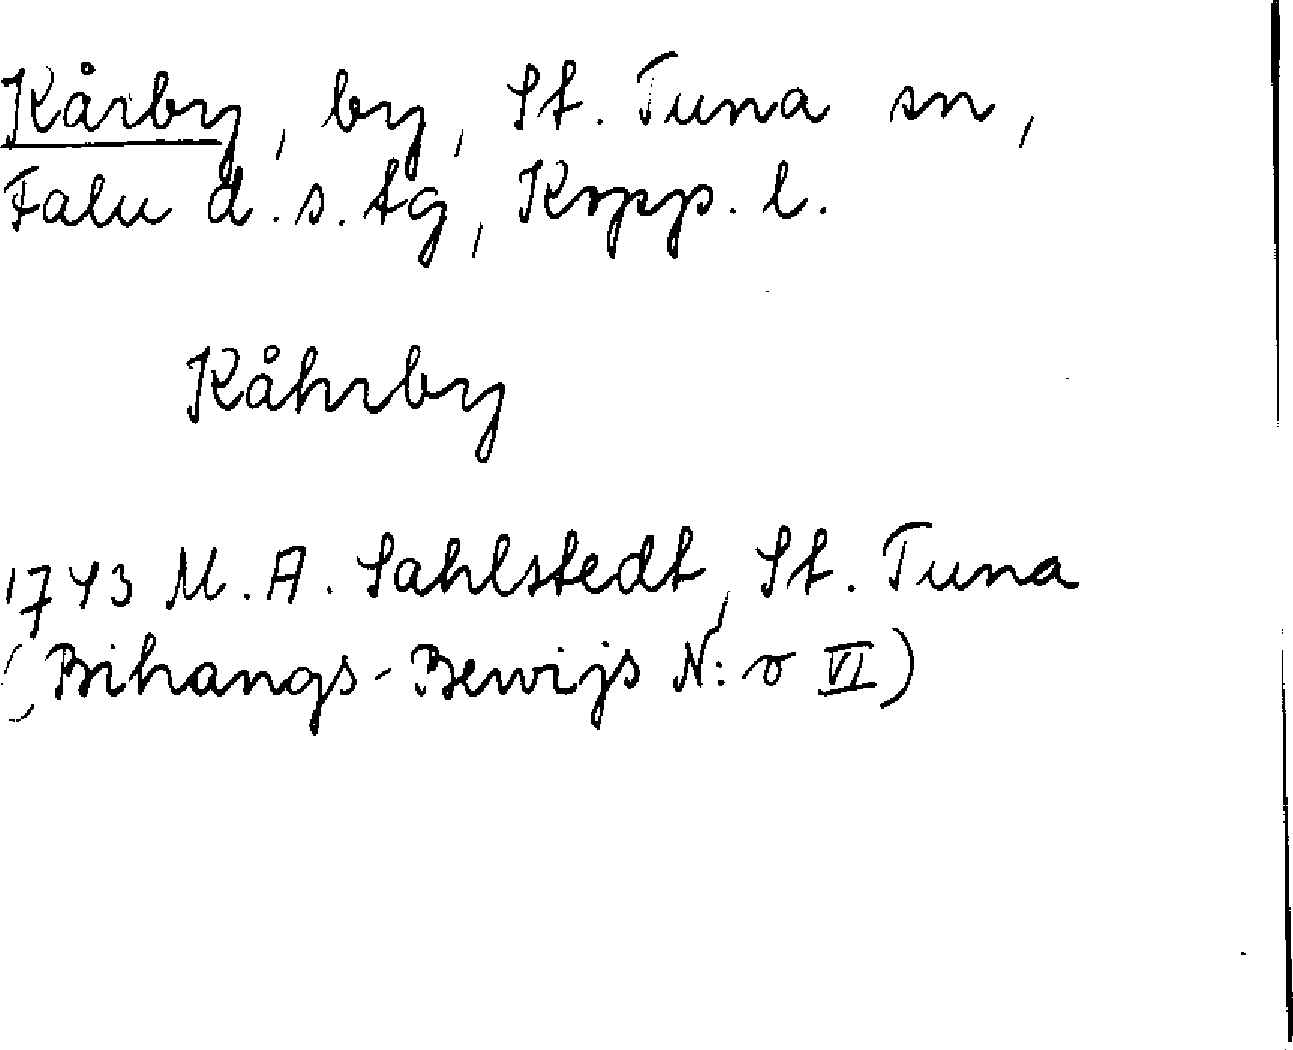 Kårby, by, St. Tuna sn,
Falu d.s. tg, Kopp. l.
Kåhrby
1743 M. A. Sahlstedt, St. Tuna
(Bihangs-Bewijs N:o VI)